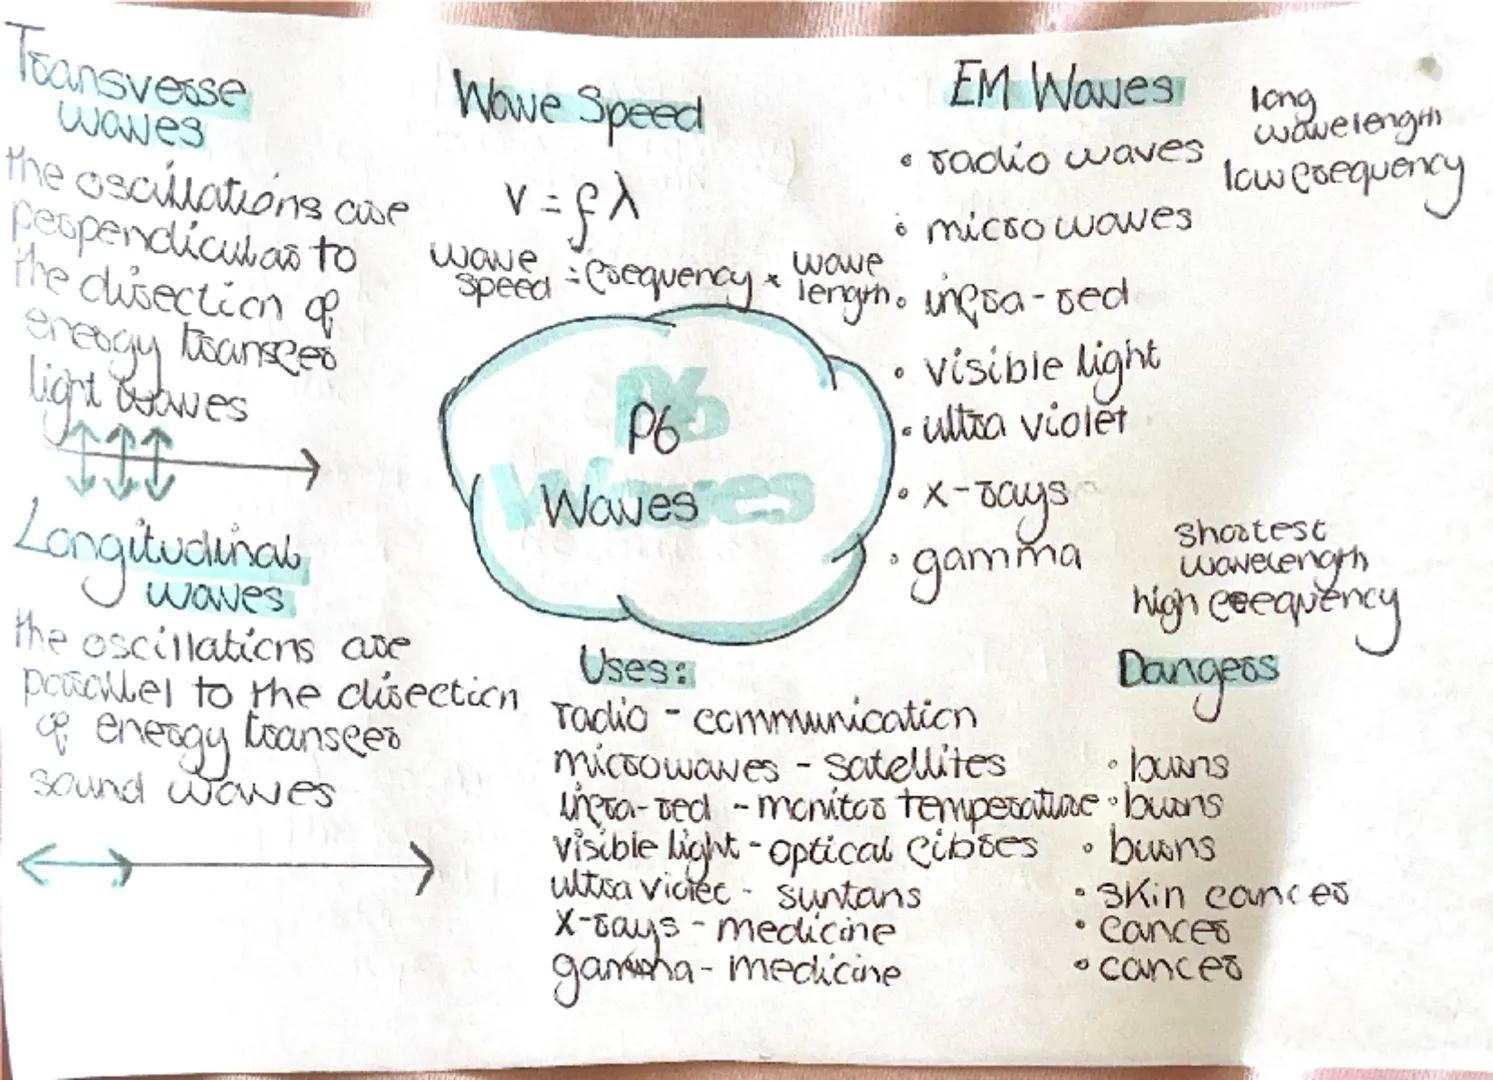 Transverse
waves
the oscillations are
perpendicular to
the direction of
energy transfer
light waves
Longitudinal
waves
the oscillations are
parallel to the direction
of energy transfer
sound waves
Wave Speed
v = fλ
wave speed = frequency × wave length
P6
Waves
EM Waves
• radio waves
long
wavelength
low frequency
• microwaves
• infra-red
• visible light
• ultra violet
• x-rays
• gamma
shortest
wavelength
high freequency
Uses:
radio - communication
microwaves - satellites
infra-red - monitor temperature
visible light - optical fibres
ultra violet - suntans
x-rays - medicine
gamma - medicine
Dangers
• burns
• burns
• burns
• skin cancer
• cancer
• cancer